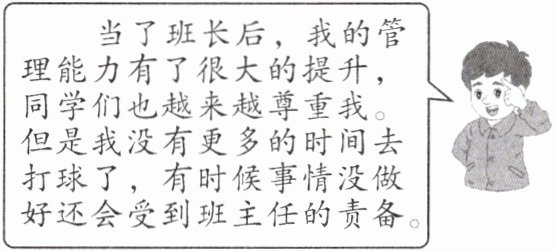 当了班长后，我的管
理能力有了很大的提升，
同学们也越来越尊重我。
但是我没有更多的时间去
打球了，有时候事情没做
好还会受到班主任的责备。